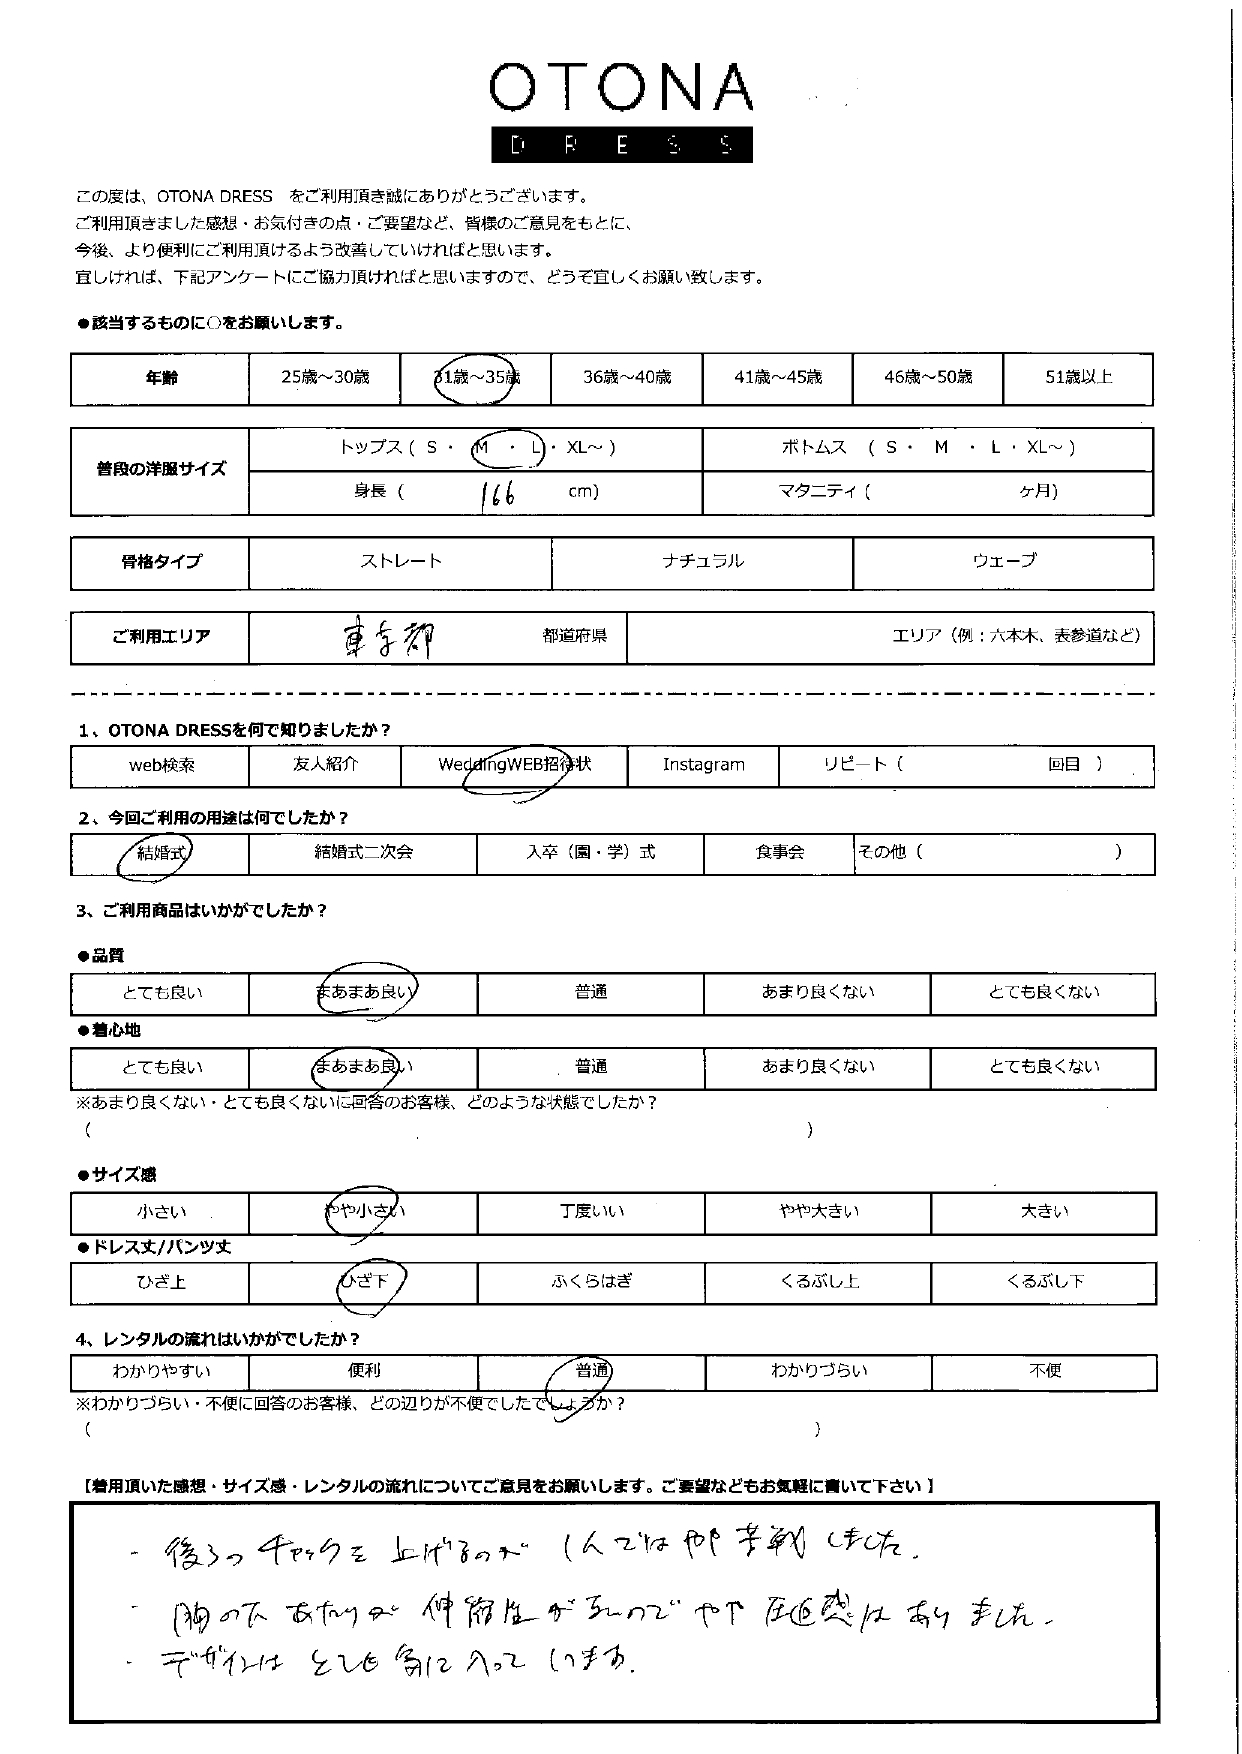 OTONA
DRESS
この度は、OTONA DRESS　をご利用頂き誠にありがとうございます。
ご利用頂きました感想・お気付きの点・ご要望など、皆様のご意見をもとに、
今後、より便利にご利用頂けるよう改善していければと思います。
宜しければ、下記アンケートにご協力頂ければと思いますので、どうぞ宜しくお願い致します。
●該当するものに○をお願いします。
年齢 25歳～30歳 31歳～35歳 36歳～40歳 41歳～45歳 46歳～50歳 51歳以上
普段の洋服サイズ トップス（ S ・ M ・ L ・ XL～ ） ボトムス （ S ・ M ・ L ・ XL～ ）
身長（ 166 cm） マタニティ（ ヶ月）
骨格タイプ ストレート ナチュラル ウェーブ
ご利用エリア 東京都 都道府県 エリア（例：六本木、表参道など）
1、OTONA DRESSを何で知りましたか？
web検索 友人紹介 WeddingWEB招待状 Instagram リピート（ 回目 ）
2、今回ご利用の用途は何でしたか？
結婚式 結婚式二次会 入卒（園・学）式 食事会 その他（ ）
3、ご利用商品はいかがでしたか？
●品質
とても良い まあまあ良い 普通 あまり良くない とても良くない
●着心地
とても良い まあまあ良い 普通 あまり良くない とても良くない
※あまり良くない・とても良くないに回答のお客様、どのような状態でしたか？
（ ）
●サイズ感
小さい やや小さい 丁度いい やや大きい 大きい
●ドレス丈/パンツ丈
ひざ上 ひざ下 ふくらはぎ くるぶし上 くるぶし下
4、レンタルの流れはいかがでしたか？
わかりやすい 便利 普通 わかりづらい 不便
※わかりづらい・不便に回答のお客様、どの辺りが不便でしたでしょうか？
（ ）
【着用頂いた感想・サイズ感・レンタルの流れについてご意見をお願いします。ご要望などもお気軽に書いて下さい 】
- 後ろのチャックを上げるのが 1人ではやや苦戦しました.
- 胸の下あたりが 伸縮性がないのでやや圧迫感はありました.
- デザインはとても気に入っています.